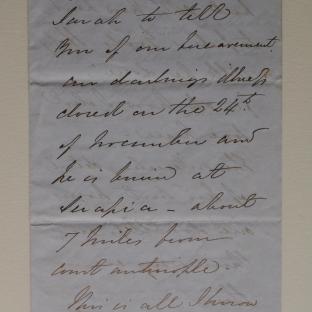 Sarah to tell
You of our bereavement.
our darlings illness
closed on the 24th.
of November and
he is buried at
Therapia - about
7 Miles from
Constantinople -
This is all I know